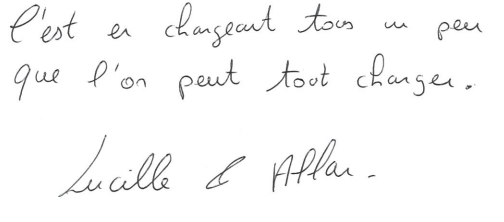 C'est en changeant tous un peu
que l'on peut tout changer.
Lucille & Allan.